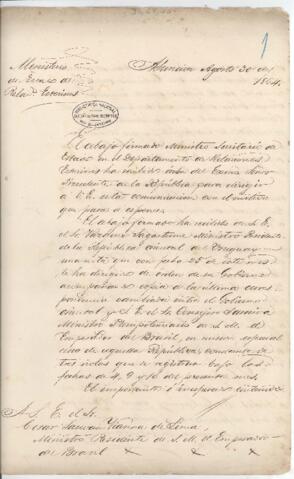 1
Ministerio
de Estado de
Relac.s Exteriores
Asuncion Agosto 30 de
1864.
El abajo firmado Ministro Secretario de
Estado en el Departamento de Relaciones
Exteriores ha recibido orden del Exmo Señor
Presidente de la República para dirigir
á V.E. esta comunicacion con el motivo
que pasa á esponer.
El abajo firmado ha recibido de S. E.
el Sr Vazquez Sagastume Ministro Residente
de la República oriental del Uruguay
una nota que con fecha 25 de este mes
le ha dirigido de orden de su Gobierno
acompañando copia de la última corres
pondencia cambiada entre el Gobierno
oriental y S. E. el Sr Consejero Saraiva
Ministro Plenipotenciario de S. M. el
Emperador del Brasil, en mision especial
cerca de aquella República, constante de
tres notas que se registran bajo las
fechas de 4, 9 y 10 del presente mes.
El importante é inesperado contenido
A. S. E. el Sr.
Cesar Sauvan Vianna de Lima,
Ministro Residente de S. M. el Emperador
del Brasil